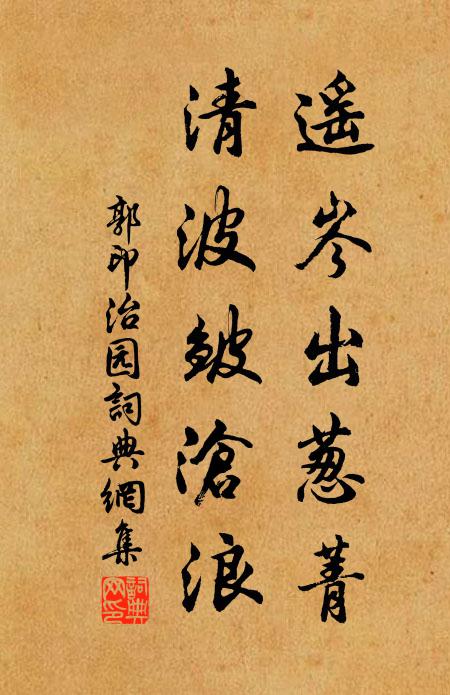 遥岑出葱菁
清波皱滄浪
郭印治园詞典網集
詞典網印